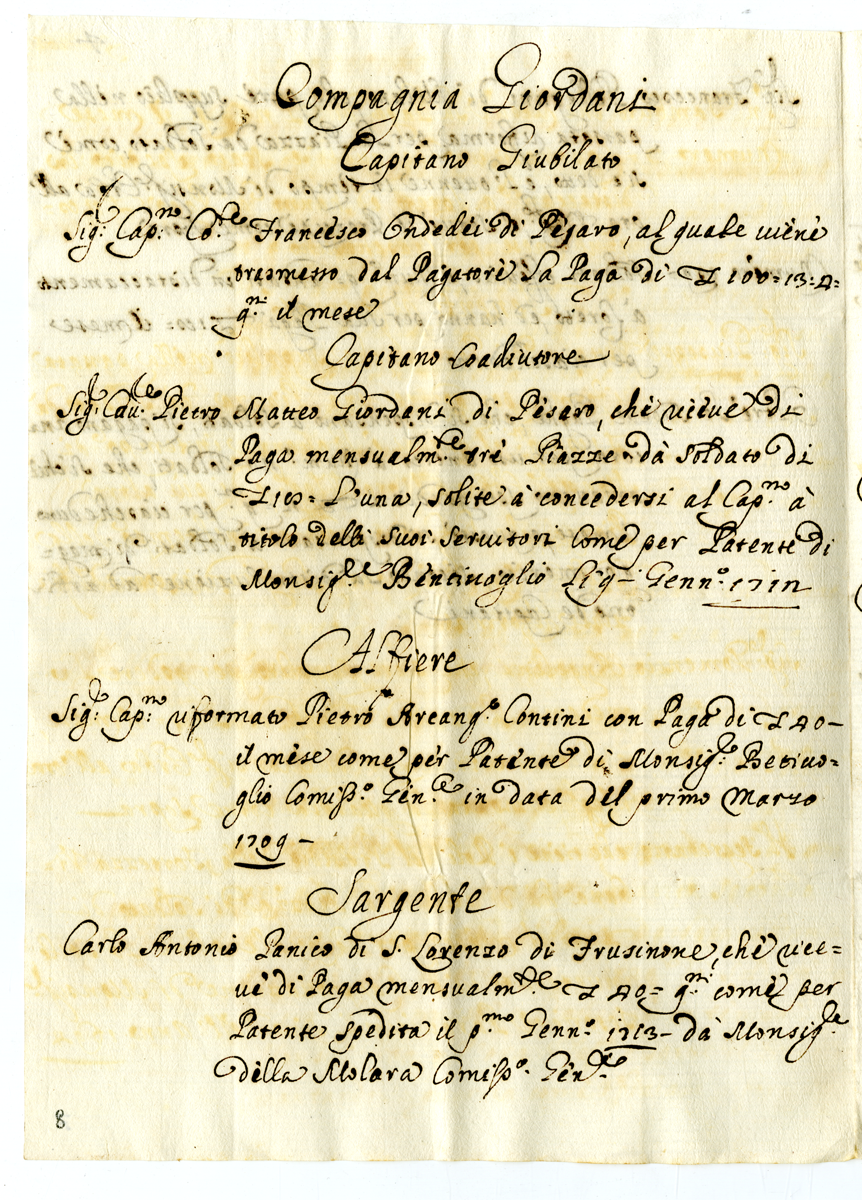 Compagnia Giordani
Capitano Giubilato
Sig.r Cap.no Co.te Francesco Ondedei di Pesaro, al quale viene
trasmesso dal Pagatore la Paga di 100=13=4=
q.ni il mese
Capitano Coadiutore
Sig.r Cau.re Pietro Matteo Giordani di Pesaro, che riceve di
Paga mensualm.te tre Piazze dà soldato di
l'una, solite à concedersi al Cap.no à
titolo delli suoi servitori come per Patente di
Monsig.re Bentivoglio Genn.o 1712
Alfiere
Sig.r Cap.no riformato Pietro Arcang.o Contini con Paga di 40-
il mese come per Patente di Monsig.r Betivo=
glio Comiss.o Gen.le in data del primo Marzo
1709 -
Sargente
Carlo Antonio Panico di S. Lorenzo di Frusinone, che rice=
ve di Paga mensualm.te 40= q.ni come per
Patente spedita il p.mo Genn.o 1713- dà Monsig.re
della Molara Comiss.o Gen.le
8